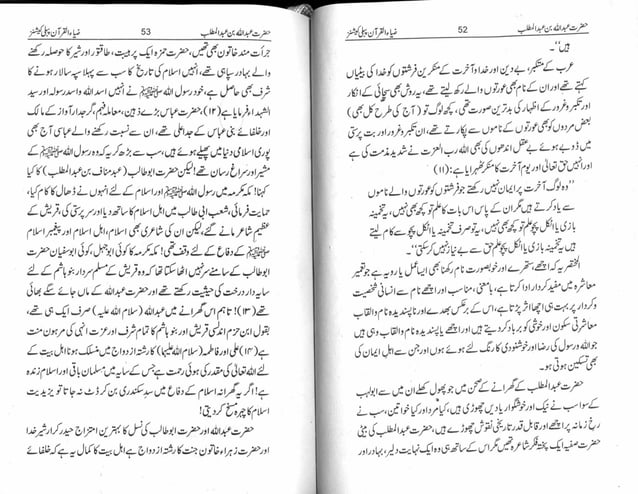 حضرت عبداللہ بن عبدالمطلب 52 ضیاء القرآن پبلی کیشنز
ہیں‘‘۔
عرب کے متکبر، بے دین اور خدا و آخرت کے منکرین فرشتوں کو خدا کی بیٹیاں
کہتے تھے اور ان کے نام بھی عورتوں والے رکھ لیتے تھے، یہ روش بھی سچائی کے انکار
اور تکبر و غرور کے اظہار کی بدترین صورت تھی، کچھ لوگ تو (آج کی طرح کل بھی)
بعض مردوں کو بھی عورتوں کے ناموں سے پکارتے تھے، ان تکبر و غرور اور بت پرستی
میں ڈوبے ہوئے بے عقل اندھوں کی بھی اللہ رب العزت نے شدید مذمت کی ہے
اور انہیں حق تعالیٰ اور یوم آخرت کا منکر ٹھہرایا ہے: (۱۱)
’’وہ لوگ آخرت پر ایمان نہیں رکھتے جو فرشتوں کو عورتوں والے ناموں
سے یاد کرتے ہیں مگر ان کے پاس اس بات کا علم تو کچھ بھی نہیں، یہ تخمینہ
بازی یا اٹکل پچو علم تو کچھ بھی نہیں، یہ تو صرف تخمینہ یا اٹکل پچو سے کام لیتے
ہیں یہ تخمینہ بازی یا اٹکل پچو علم حق سے بے نیاز نہیں کر سکتی‘‘۔
المختصر یہ کہ اچھے، ستھرے اور خوبصورت نام رکھنا بھی ایسا عمل یا رویہ ہے جو تعمیر
معاشرہ میں مفید کردار ادا کرتا ہے، بامعنی، مناسب اور اچھے نام سے انسانی شخصیت
و کردار پر بہت ہی اچھا اثر پڑتا ہے، اس کے برعکس بھدے اور ناپسندیدہ نام والقاب
معاشرتی سکون اور خوشی کو برباد کر دیتے ہیں اور اچھے یا پسندیدہ نام والقاب وہی ہیں
جو اللہ و رسول کی رضا اور خوشنودی کا رنگ لئے ہوئے ہوں اور جن سے اہل ایمان کی
بھی تسکین ہوتی ہو۔
حضرت عبدالمطلب کے گھرانے کے صحن میں جو پھول کھلے ان میں سے ابولہب
کے سوا سب نے نیک اور خوشگوار یادیں چھوڑی ہیں، کیا مرد اور کیا خواتین، سب نے
رخ زمانہ پر اچھے اور قابل قدر تاریخی نقوش چھوڑے ہیں، حضرت عبدالمطلب کی بیٹی
حضرت صفیہ ایک پختہ فکر شاعرہ تھیں مگر اس کے ساتھ ہی وہ ایک نہایت دلیر، بہادر اور
حضرت عبداللہ بن عبدالمطلب 53 ضیاء القرآن پبلی کیشنز
جرأت مند خاتون بھی تھیں، حضرت حمزہ ایک پر ہیبت، طاقتور اور شیر کا حوصلہ رکھنے
والے بہادر سپاہی تھے، انہیں اسلام کی تاریخ کا سب سے پہلا سپہ سالار ہونے کا
شرف بھی حاصل ہے، خود رسول اللہ ﷺ نے انہیں اسد اللہ واسد رسولہ اور سید
الشہداء فرمایا ہے (۱۲)، حضرت عباس بڑے ذہین، معاملہ فہم، گرجدار آواز کے مالک
اور خلفائے بنی عباس کے جد اعلیٰ تھے، ان سے نسبت رکھنے والے عباسی آج بھی
پوری اسلامی دنیا میں پھیلے ہوئے ہیں، سب سے بڑھ کر یہ کہ وہ رسول اللہ ﷺ کے
مشیر اور سراغ رساں تھے، لیکن حضرت ابو طالب (عبد مناف بن عبدالمطلب) کا کیا
کہنا! مکہ مکرمہ میں رسول اللہ ﷺ کے لئے انہوں نے ڈھال کا کام کیا،
حمایت فرمائی، شعب ابی طالب میں اہل اسلام کا ساتھ دیا اور سرپرستی کی، قریش کے
عظیم شاعر مانے گئے، لیکن ان کی شاعری بھی اہل اسلام اور پیغمبر اسلام
ﷺ کے دفاع کے لئے وقف تھی! مکہ مکرمہ کا کوئی ابوجہل، کوئی ابوسفیان حضرت
ابو طالب کے سامنے سر نہیں اٹھا سکتا تھا، وہ قریش کے مسلم سردار بنو ہاشم کے لئے
سایہ دار درخت کی حیثیت رکھتے تھے اور حضرت عبداللہ کے ماں جائے سگے بھائی
تھے (۱۳)! تاہم اس گھرانے میں عبداللہ (سلام اللہ علیہ) صرف ایک ہی تھے،
بقول ابن حزم اندلسی قریش اور بنو ہاشم کا تمام شرف اور عزت انہی کی مرہون منت
ہے (۱۴) علی اور فاطمہ (سلام اللہ علیہما) کا رشتہ ازدواج میں منسلک ہونا اہل بیت کے
لئے اللہ تعالیٰ کی مقدر کی ہوئی رحمت ہے جس کے سائے میں مسلمان باقی اور اسلام زندہ
ہے! اگر یہ گھرانہ اسلام کے دفاع میں سد سکندری بن کر ڈٹ نہ جاتا تو یزیدیت
اسلام کا چہرہ مسخ کر دیتی!
حضرت عبداللہ اور حضرت ابو طالب کی نسل کا بہترین امتزاج حیدر کرار شیر خدا
اور حضرت زہراء خاتون جنت کا رشتہ ازدواج ہے اہل بیت کا کمال یہ ہے کہ خلفائے